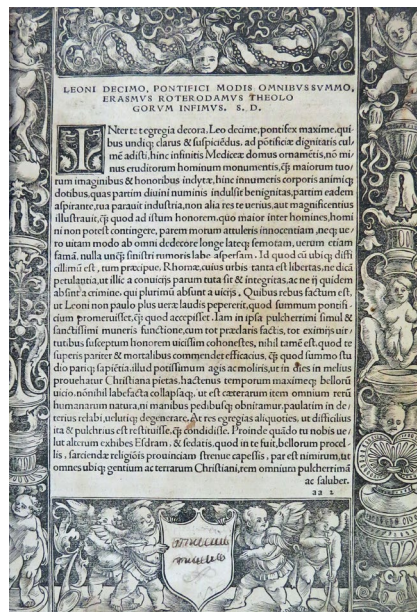 LEONI DECIMO, PONTIFICI MODIS OMNIBVS SVMMO,
ERASMVS ROTERODAMVS THEOLO
GORVM INFIMVS. S. D.
INter tot egregia decora, Leo decime, pontifex maxime, qui
bus undiq; clarus & suspiciēdus, ad pōtificię dignitatis cul
mē adisti, hinc infinitis Medicæ domus ornamētis, nō mi
nus eruditorum hominum monumentis, q̃ maiorum tuo
rum imaginibus & honoribus inclytæ, hinc innumeris corporis animiq;
dotibus, quas partim diuini numinis indulsit benignitas, partim eadem
aspirante, tua parauit industria, non alia res te uerius, aut magnificentius
illustrauit, q̃ quod ad istum honorem, quo maior inter homines, homi
ni non potest contingere, parem morum attuleris innocentiam, neq; ue/
ro uitam modo ab omni dedecore longe lateq; semotam, uerum etiam
famā, nulla unq̃ sinistri rumoris labe aspersam. Id quod cū ubiq; diffi
cillimū est, tum præcipue Rhomæ, cuius urbis tanta est libertas, ne dicā
petulantia, ut illic a conuicijs parum tuta sit & integritas, ac ne ij quidem
absint a crimine, qui plurimū absunt a uicijs. Quibus rebus factum est,
ut Leoni non paulo plus ueræ laudis pepererit, quod summum pontifi
cium promeruisset, q̃ quod accepisset. Iam in ipsa pulcherrimi simul &
sanctissimi muneris functione, cum tot præclaris factis, tot eximijs uir/
tutibus susceptum honorem uicissim cohonestes, nihil tamē est, quod te
superis pariter & mortalibus commendet efficacius, q̃ quod summo stu
dio pariq; sapiētia, illud potissimum agis ac moliris, ut in dies in melius
prouehatur Christiana pietas, hactenus temporum maximeq; bellorū
uicio, nōnihil labefacta collapsaq;, ut est cæterarum item omnium rerū
humanarum natura, ni manibus pedibusq; obnitamur, paulatim in de/
terius relabi, uelutiq; degenerare. At res egregias aliquoties, ut difficilius
ita & pulchrius est restituisse, q̃ condidisse. Proinde quādo tu nobis ue/
lut alterum exhibes Esdram, & sedatis, quod in te fuit, bellorum procel
lis, sarciendæ religiōis prouinciam strenue capessis, par est nimirum, ut
omnes ubiq; gentium ac terrarum Christiani, rem omnium pulcherrimā
ac saluber.
aa 2